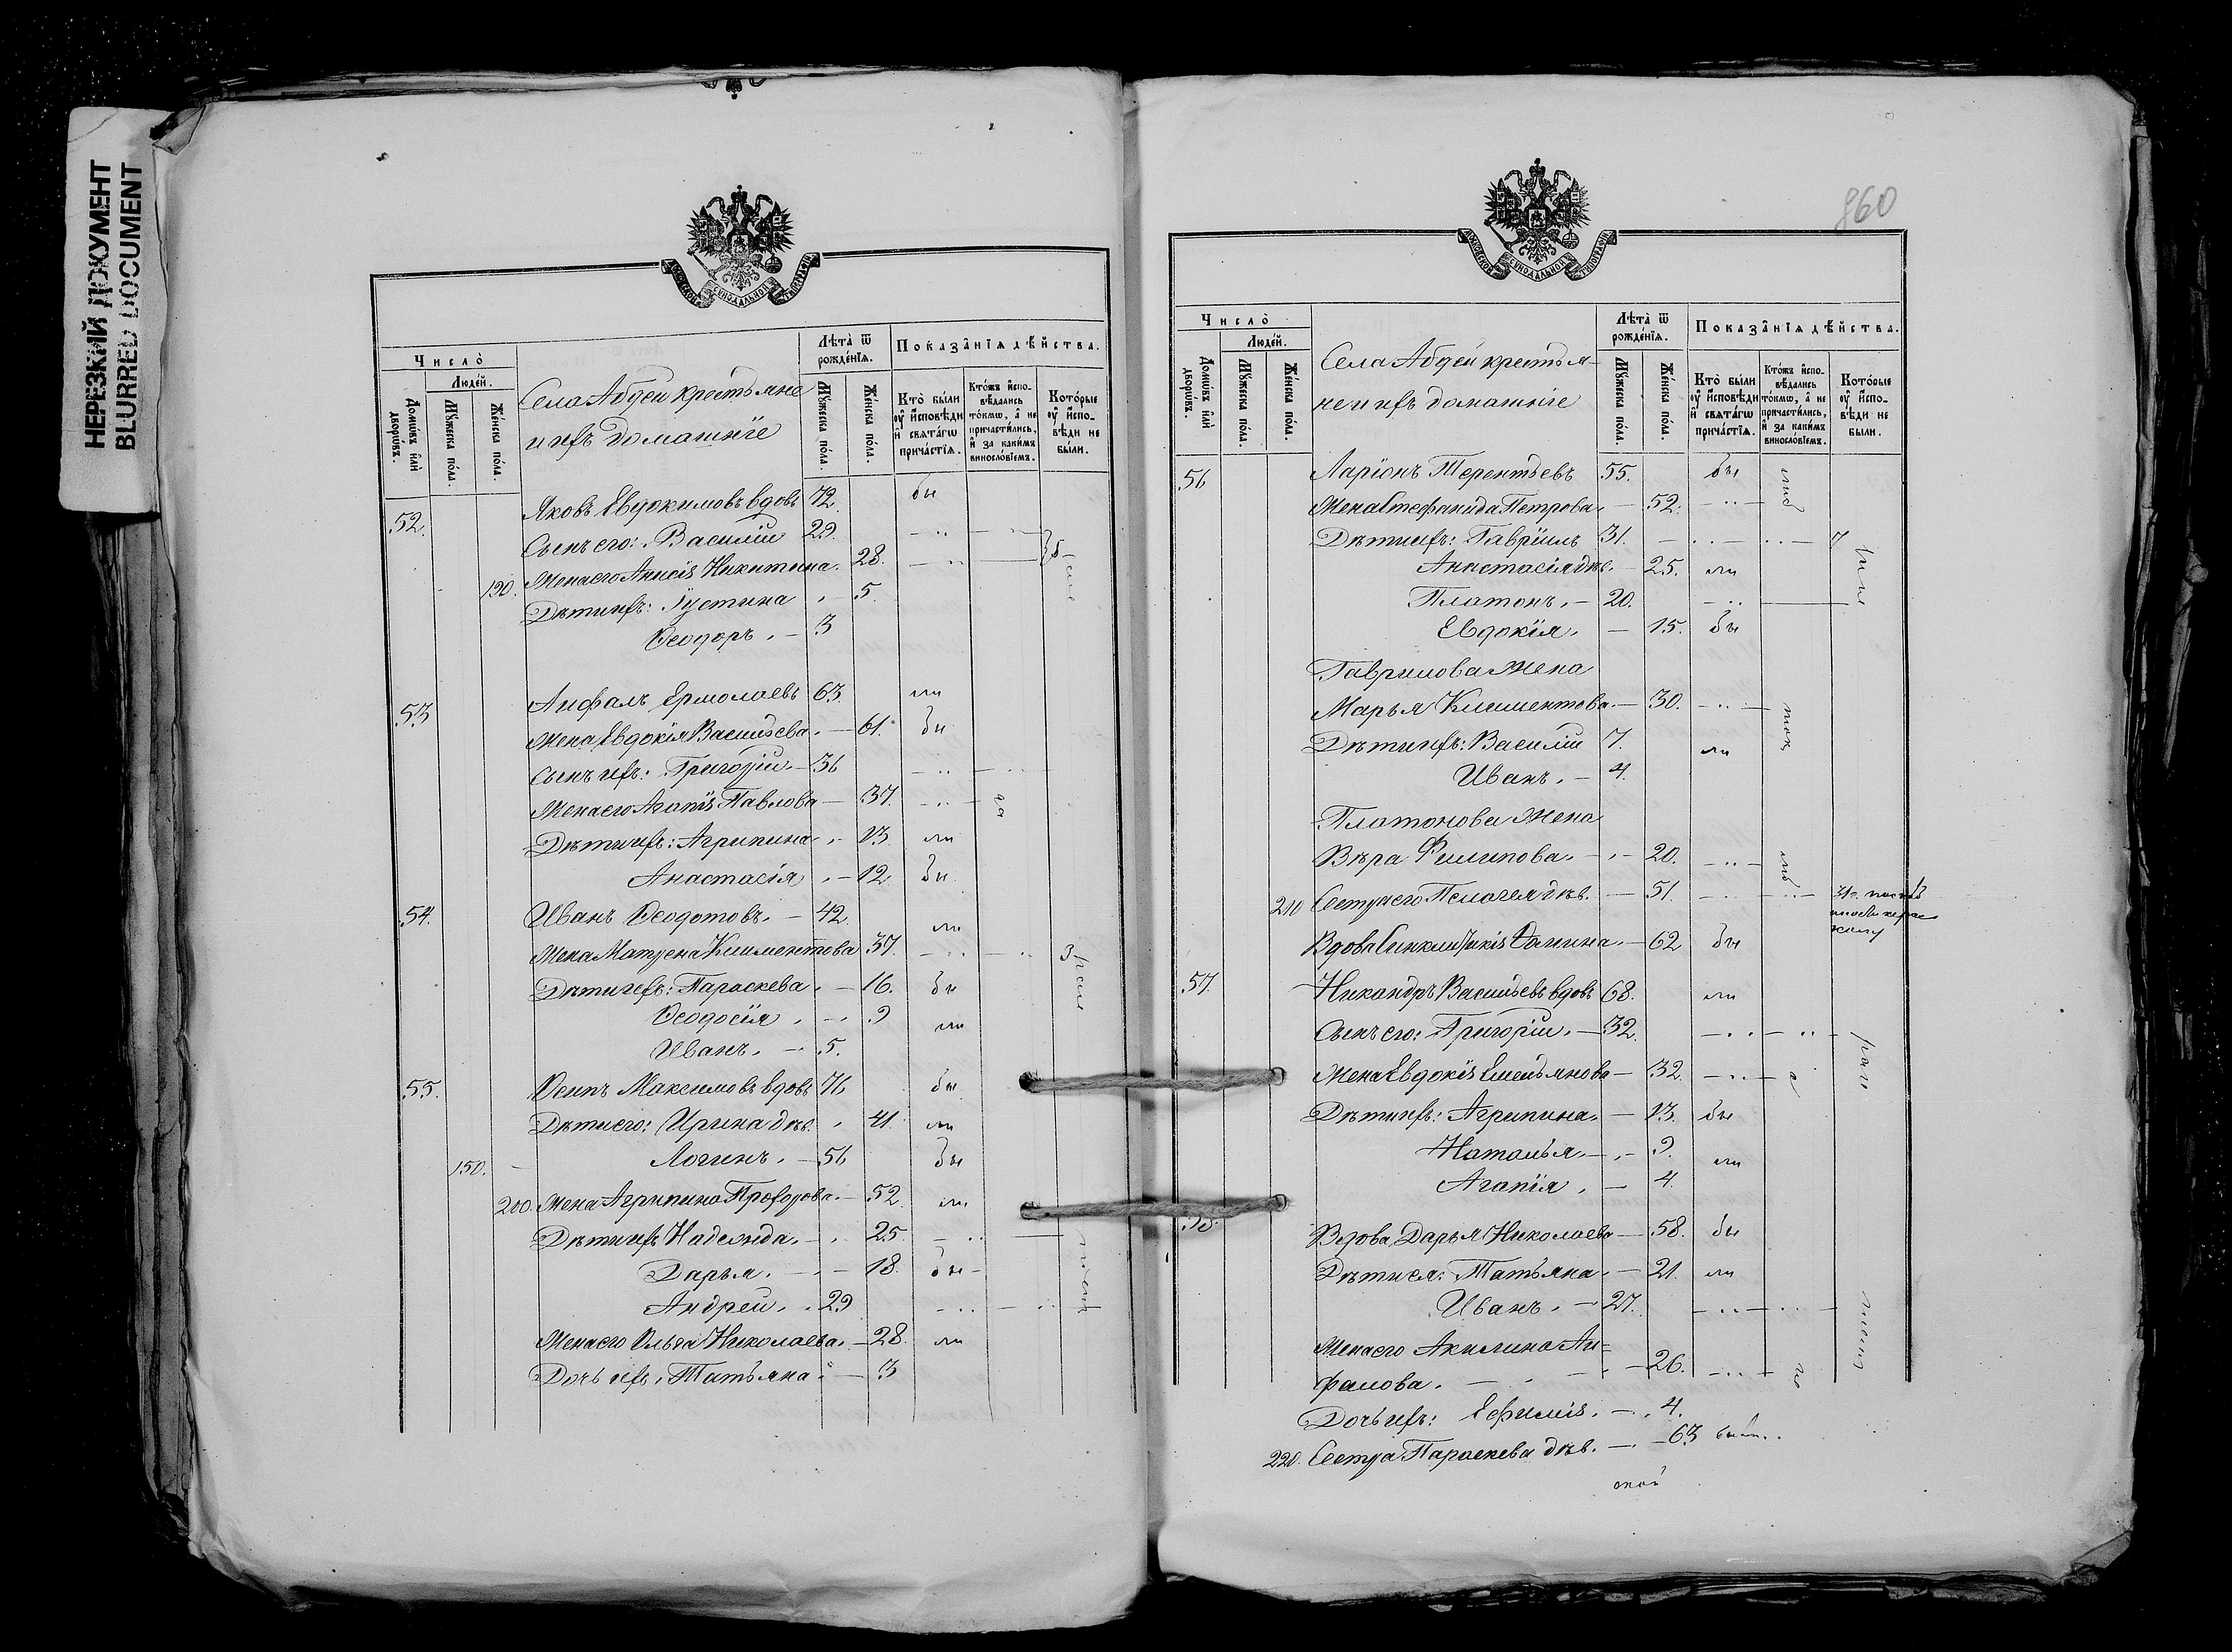 НЕРЕЗКИЙ ДОКУМЕНТ
BLURRED DOCUMENT
МОСКОВСКОЙ СИНОДАЛЬНОЙ ТИПОГРАФІИ
Число̀
Людéй.
Домѡ́въ и҆лѝ дворѡ́въ.
Мꙋ́жеска по́ла.
Же́нска по́ла.
Села Абдей крестьяне
и ихъ домашніе
Лѣта̀ ѿ рожде́нїѧ.
Мꙋ́жеска по́ла.
Же́нска по́ла.
Показа̑нїѧ дѣ́йства.
Кто̀ бы́ли ᲂу҆ и҆сповѣди и҆ свѧта́гѡ прича́стїѧ.
Кто́жъ и҆спо-вѣдались то́кмѡ, а҆ не причасти́лись, и҆ за каки́мъ винослóвїемъ.
Кото́рые ᲂу҆ и҆спо-вѣди не бы́ли.
52. Яковъ Евдокимовъ вдовъ 72. бы
Сынъ его: Василій 29.
190. Жена его Анисія Никитина. 28.
Дѣти ихъ: Іустина 5.
Ѳеодоръ. 3
53 Анфалъ Ермолаевъ 63. ли
Жена Евдокія Васильева. 61. бы
Сынъ ихъ: Григорій. 36
Жена его Агапія Павлова 37.
Дѣти ихъ: Агрипина 13. ли
Анастасія 12. бы
54. Иванъ Ѳеодотовъ. 42. ли
Жена Матрена Климентова 37.
Дѣти ихъ: Параскева. 16. бы
Ѳеодосія. 9 ли
Иванъ. 5.
55. Осипъ Максимовъ вдовъ 76 бы
Дѣти его: Ирина дѣв. 41. ли
150. Логинъ. 56 бы
200. Жена Агрипина Прохорова. 52. ли
Дѣти ихъ Надежда. 25.
Дарья. 18. бы
Андрей. 29
Жена его Ольга Николаева. 28. ли
Дочь ихъ, Татьяна. 3
860
МОСКОВСКОЙ СИНОДАЛЬНОЙ ТИПОГРАФІИ
Число̀
Людéй.
Домѡ́въ и҆лѝ дворѡ́въ.
Мꙋ́жеска по́ла.
Же́нска по́ла.
Села Абдей крестья-
не и ихъ домашніе
Лѣта̀ ѿ рожде́нїѧ.
Мꙋ́жеска по́ла.
Же́нска по́ла.
Показа̑нїѧ дѣ́йства.
Кто̀ бы́ли ᲂу҆ и҆сповѣди и҆ свѧта́гѡ прича́стїѧ.
Кто́жъ и҆спо-вѣдались то́кмѡ, а҆ не причасти́лись, и҆ за каки́мъ винослóвїемъ.
Кото́рые ᲂу҆ и҆спо-вѣди не бы́ли.
56 Ларіонъ Терентьевъ 55. бы
Жена Стефанида Петрова. 52.
Дѣти ихъ: Гавріилъ 31.
Анастасія дѣв. 25. ли
Платонъ. 20.
Евдокія. 15. бы
Гаврилова жена
Марья Климентова. 30.
Дѣти ихъ: Василій 7. ли
Иванъ. 4.
Платонова жена
Вѣра Филипова. 20.
210 Сестра его Пелагея дѣв. 51.
Вдова Синклитикія Ѳомина. 62 бы
57. Никандръ Васильевъ вдовъ 68. ли
Сынъ его: Григорій. 32.
Жена Евдокія Емельянова 32.
Дѣти ихъ: Агрипина. 13. бы
Наталья. 9. ли
Агапія. 4.
58. Вдова Дарья Николаева 58. бы
Дѣти ея: Татьяна. 21. ли
Иванъ. 27.
Жена его Акилина Ан=
фалова. 26.
Дочь ихъ: Ефимія. 4.
220. Сестра Параскева дѣв. 63 были.